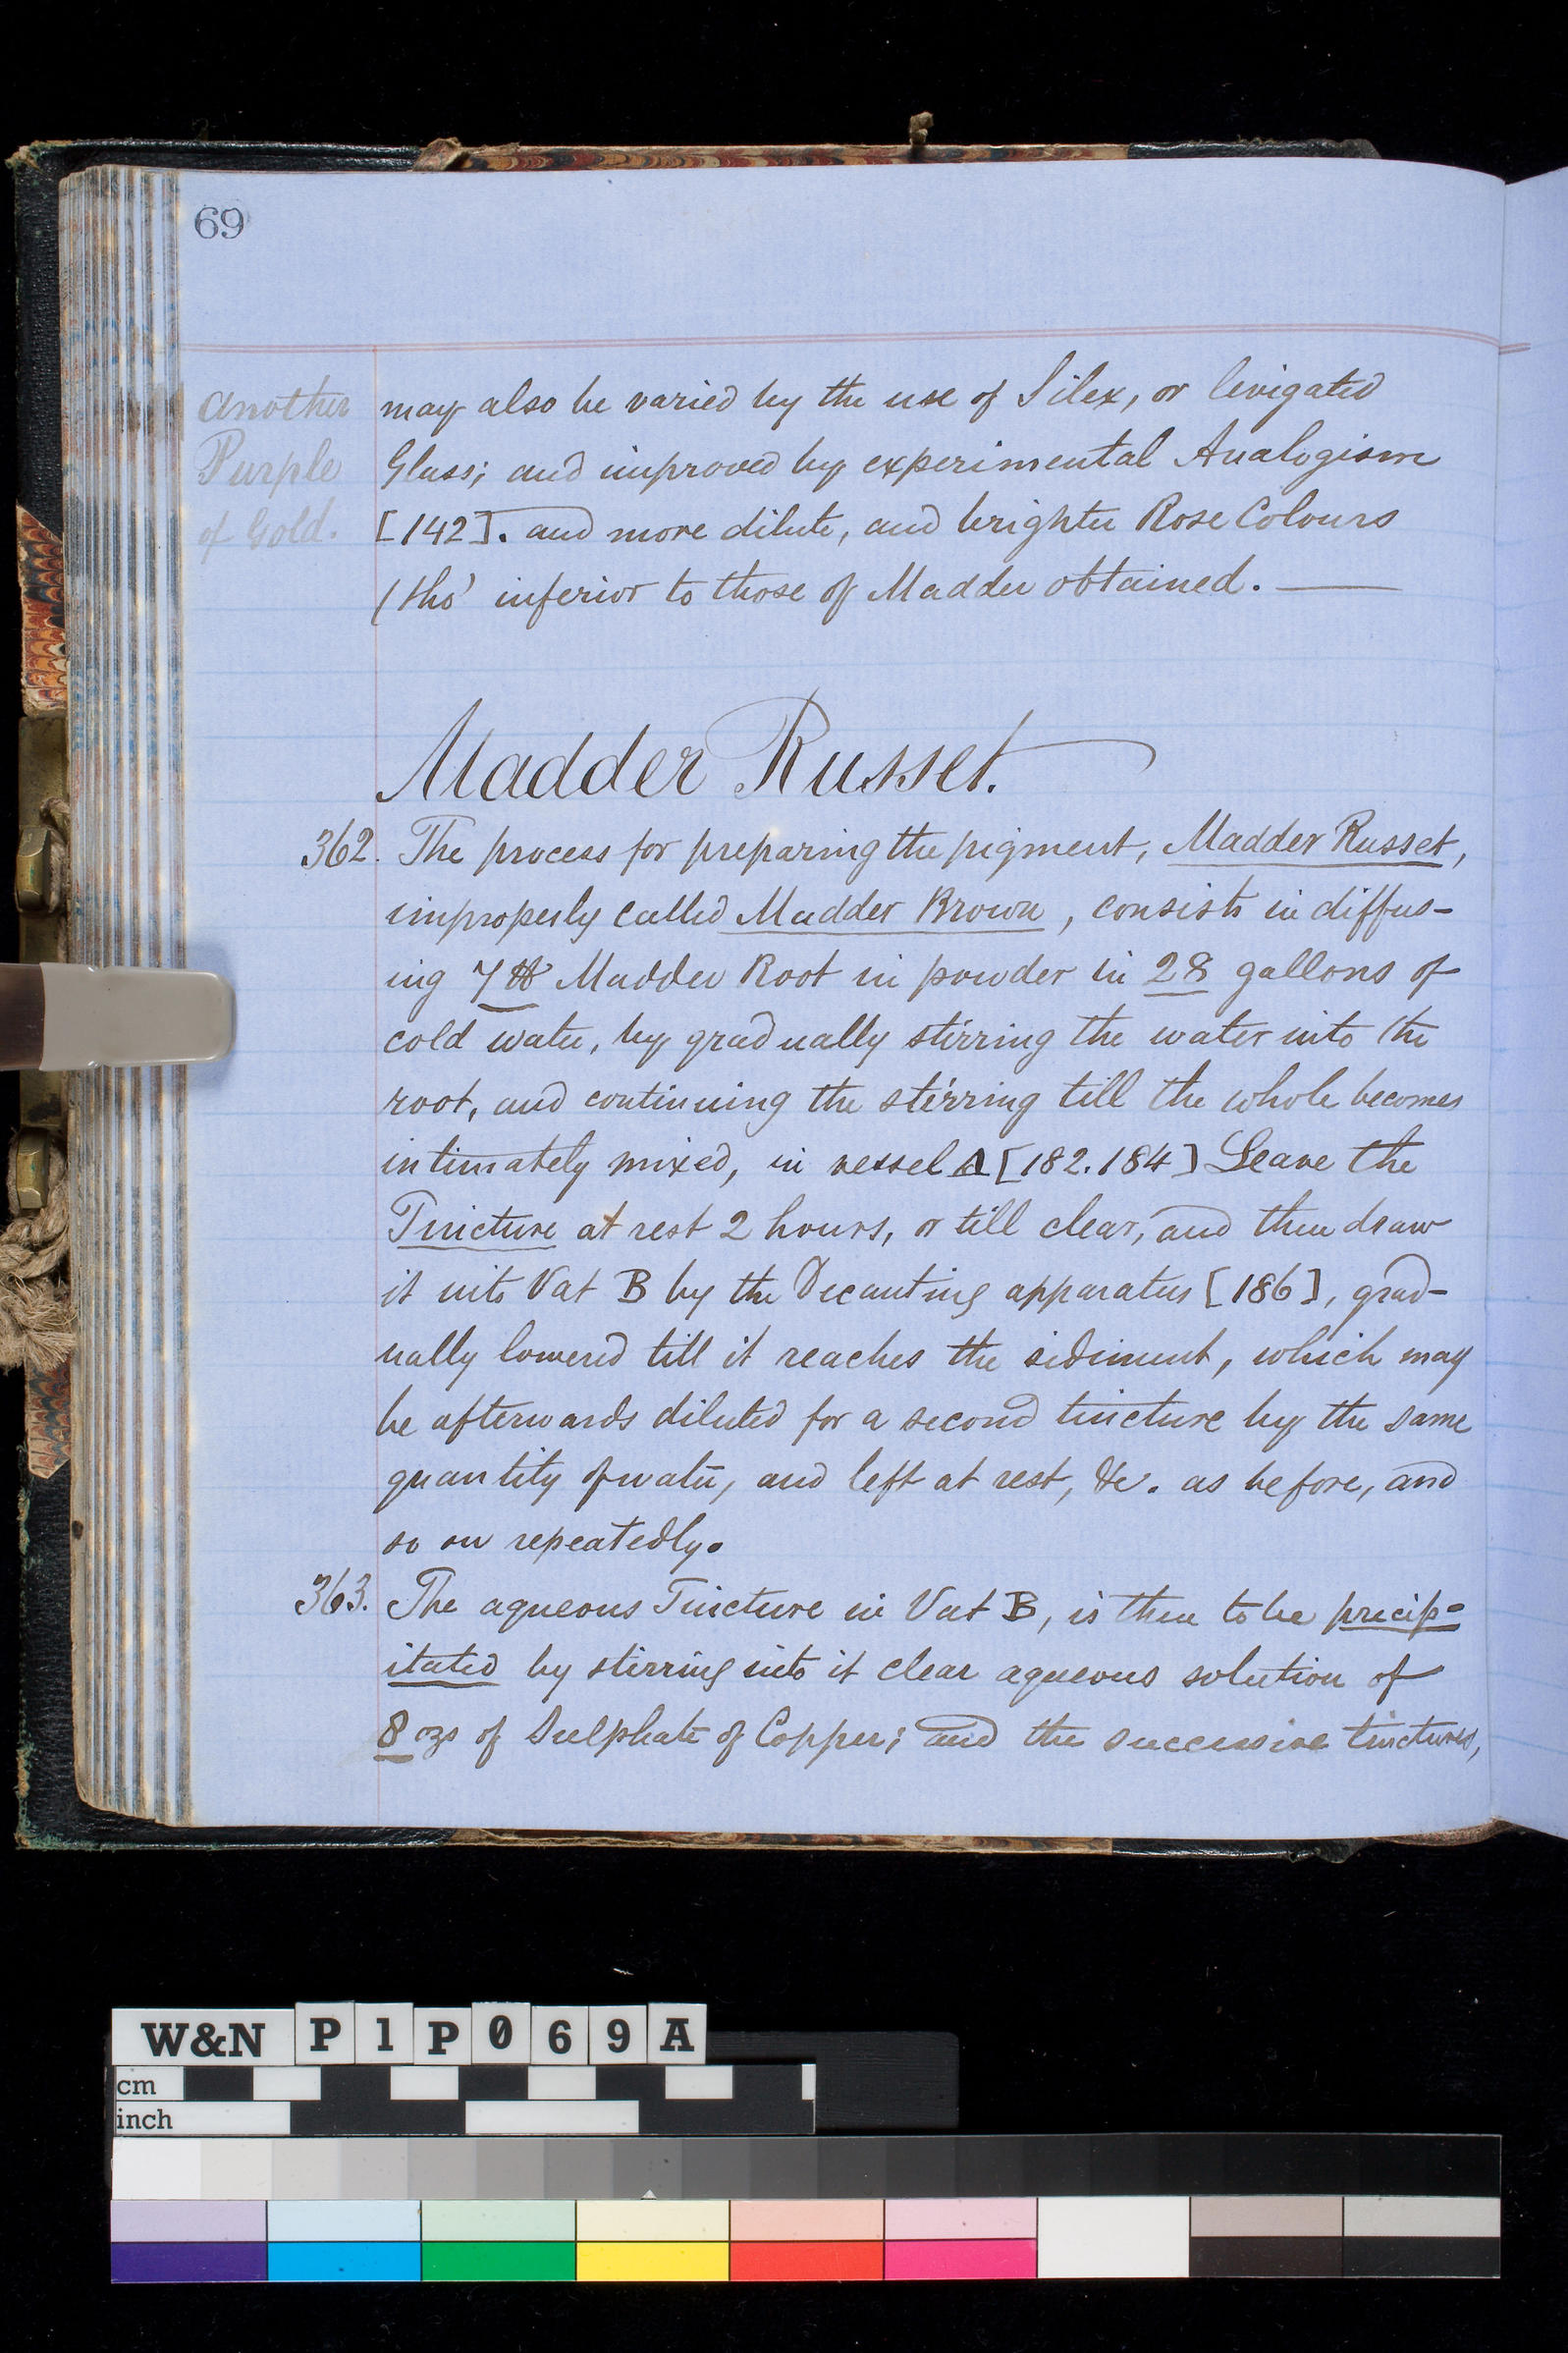 69
another
Purple
of Gold.
may also be varied by the use of Silex, or levigated
Glass; and improved by experimental Analogism
[142]. and more dilute, and brighter Rose Colours
(tho' inferior to those of Madder obtained. —
Madder Russet.
362. The process for preparing the pigment, Madder Russet,
improperly called Madder Brown, consists in diffus-
ing 7 lb Madder Root in powder in 28 gallons of
cold water, by gradually stirring the water into the
root, and continuing the stirring till the whole becomes
intimately mixed, in vessel A [182.184] Leave the
Tincture at rest 2 hours, or till clear, and then draw
it into Vat B by the Decanting apparatus [186], grad-
ually lowered till it reaches the sediment, which may
be afterwards diluted for a second tincture by the same
quantity of water, and left at rest, &c. as before, and
so on repeatedly.
363. The aqueous Tincture in Vat B, is then to be precip-
itated by stirring into it clear aqueous solution of
8 ozs of Sulphate of Copper; and the successive tinctures,
W&N P1P069A
cm
inch